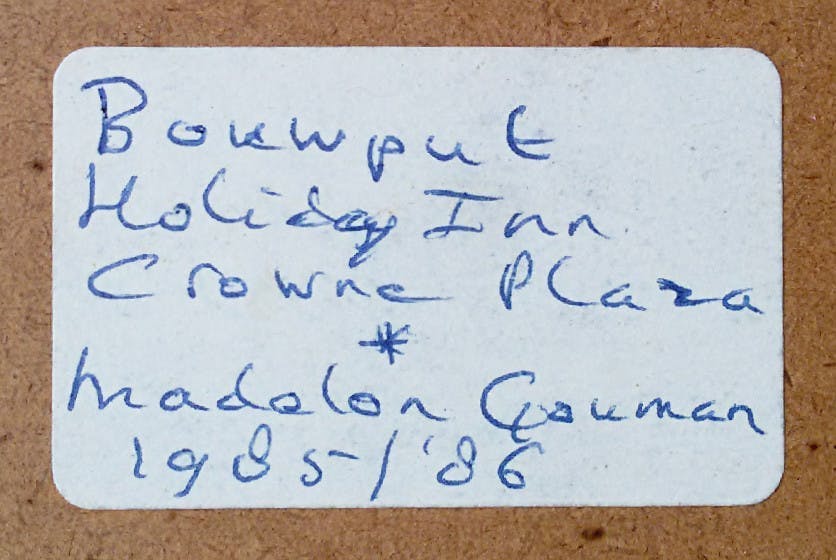 Bouwput
Holiday Inn
Crowne Plaza
*
Madelon Gouman
1985/'86